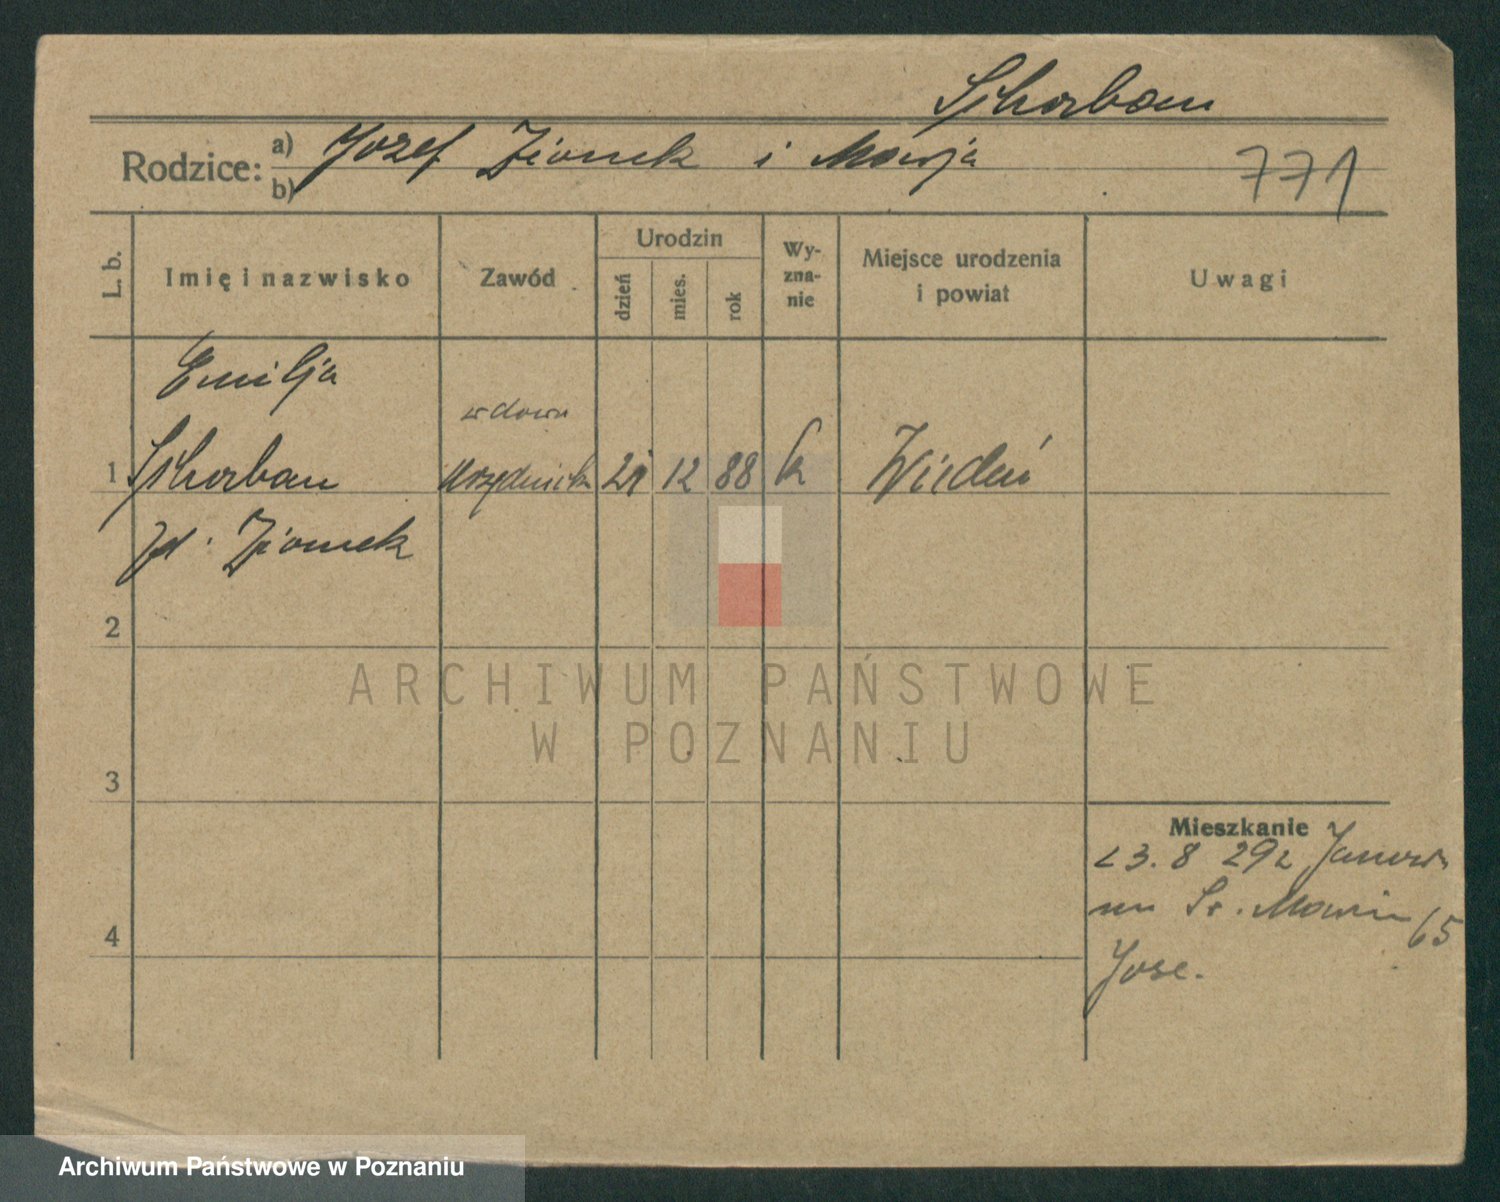 Schorban
Rodzice: a) Józef Zionek i Marja
b)
771
L. b. Imię i nazwisko Zawód Urodzin dzień mies. rok Wy-zna-nie Miejsce urodzenia i powiat Uwagi
Emilja
wdowa
1 Schorban 21 12 88 k Wiedeń
Zionek
2
3
Mieszkanie
23.8 29
65
4
ARCHIWUM PAŃSTWOWE
W POZNANIU
Archiwum Państwowe w Poznaniu